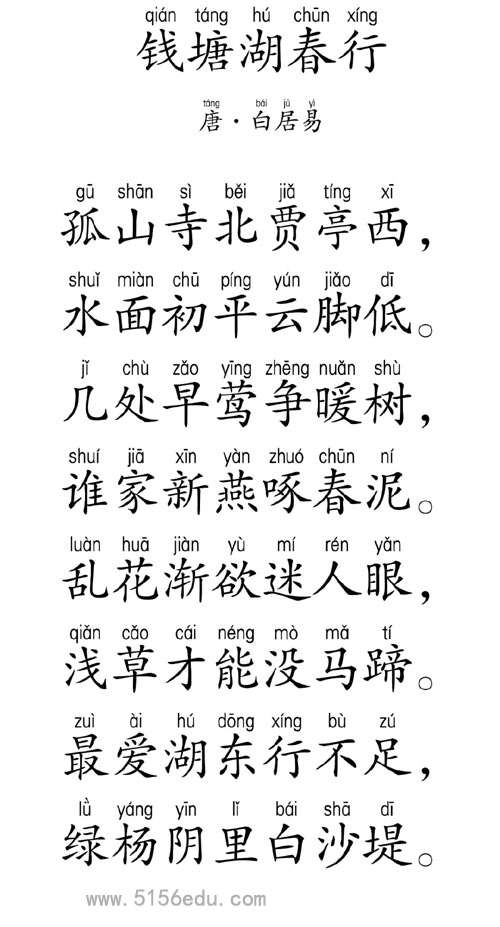 qián táng hú chūn xíng
钱塘湖春行
táng bái jū yì
唐·白居易
gū shān sì běi jiǎ tíng xī
孤山寺北贾亭西，
shuǐ miàn chū píng yún jiǎo dī
水面初平云脚低。
jǐ chù zǎo yīng zhēng nuǎn shù
几处早莺争暖树，
shuí jiā xīn yàn zhuó chūn ní
谁家新燕啄春泥。
luàn huā jiàn yù mí rén yǎn
乱花渐欲迷人眼，
qiǎn cǎo cái néng mò mǎ tí
浅草才能没马蹄。
zuì ài hú dōng xíng bù zú
最爱湖东行不足，
lǜ yáng yīn lǐ bái shā dī
绿杨阴里白沙堤。
www.5156edu.com